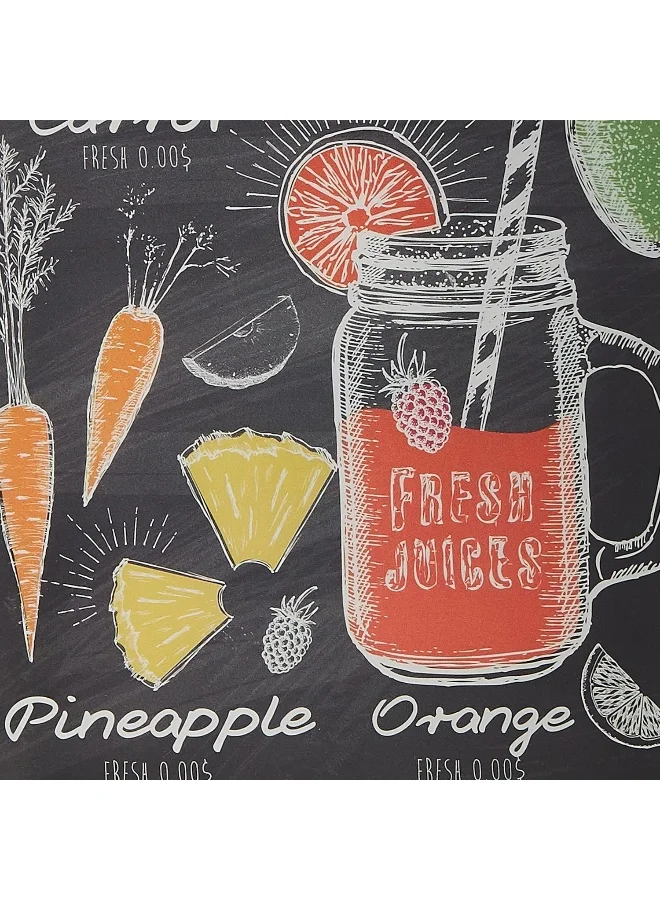 Carrot
FRESH 0.00$
FRESH
JUICES
Pineapple
Orange
FRESH 0.00$
FRESH 0.00$